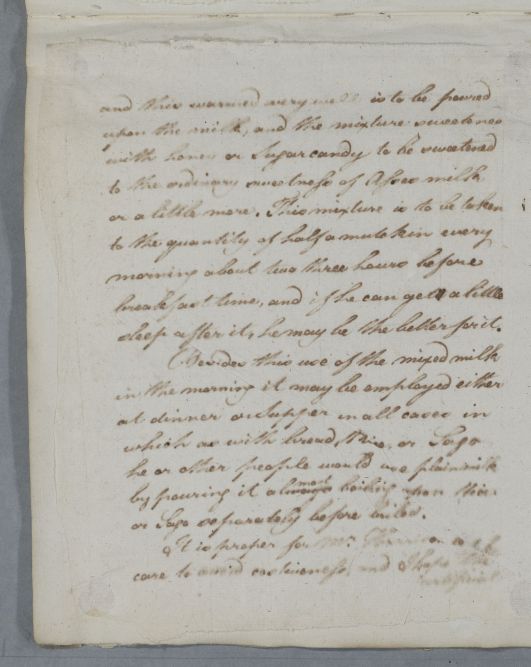 and this warmed very well is to be poured
upon the milk, and the mixture sweetened
with honey or Sugarcandy to be sweetened
to the ordinary sweetness of Asses milk
or a little more. This mixture is to be taken
to the quantity of half a mutchkin every
morning about two three hours before
breakfast time, and if he can get a little
sleep after it, he may be the better for it.
Besides this use of the mixed milk
in the morning it may be employed either
at dinner or Supper in all cases in
which as with bread, Rice, or Sago
he or other people would use plain milk
by pouring it almost boiling upon this
or Sago separately before boiled.
It is proper for Mr.
care to avoid costiveness, and the